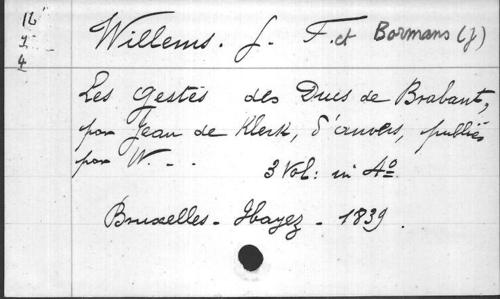 16
Willems. J. F. et Bormans (J)
4
Les gestes des Ducs de Brabant,
par Jean de Klerk, d'anvers, publiés
par W. - -
3 Vol: in 4º.
Bruxelles - Hayez - 1839.